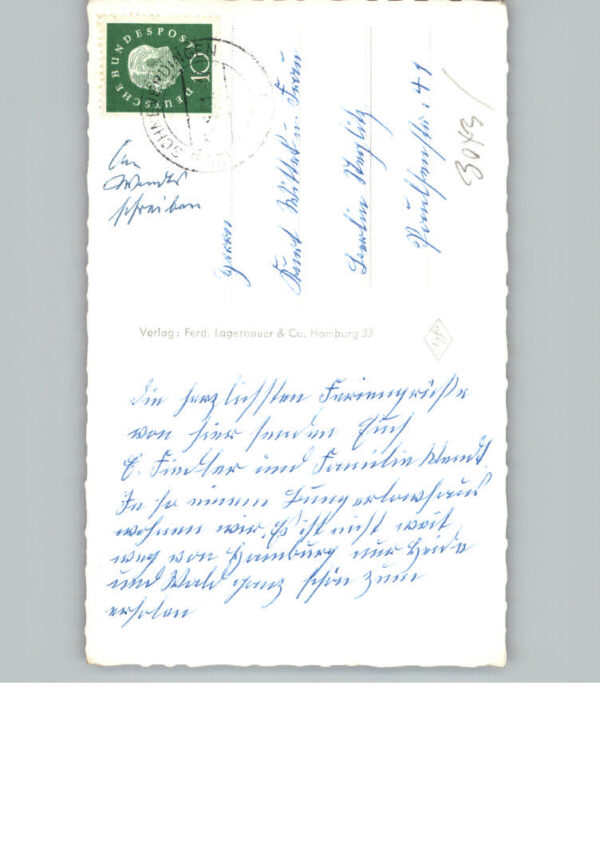 DEUTSCHE BUNDESPOST
10
An
Wendts
schreiben
Herrn
Kurt Wittel u. Frau
Berlin Steglitz
Paulsenstr. 41
3043/
Verlag: Ferd. Lagerbauer & Co. Hamburg 33
Die herzlichsten Feriengrüße
von hier senden Euch
E. Fiedler und Familie Wendt.
In so einem Bungerlowhaus
wohnen wir. Es ist nicht weit
weg von Hamburg nur Heide
und Wald ganz schön zum
erholen